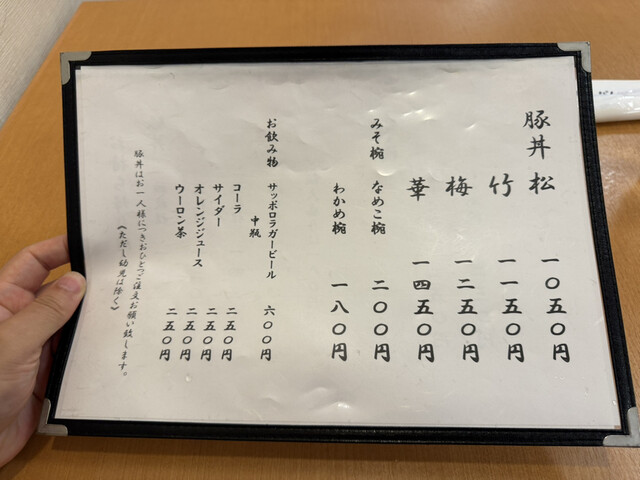 豚丼 松 一〇五〇円
竹 一一五〇円
梅 一二五〇円
華 一四五〇円
みそ椀 なめこ椀 二〇〇円
わかめ椀 一八〇円
お飲み物 サッポロラガービール
中瓶 六〇〇円
コーラ 二五〇円
サイダー 二五〇円
オレンジジュース 二五〇円
ウーロン茶 二五〇円
豚丼はお一人様につきおひとつご注文お願い致します。
(ただし幼児は除く)